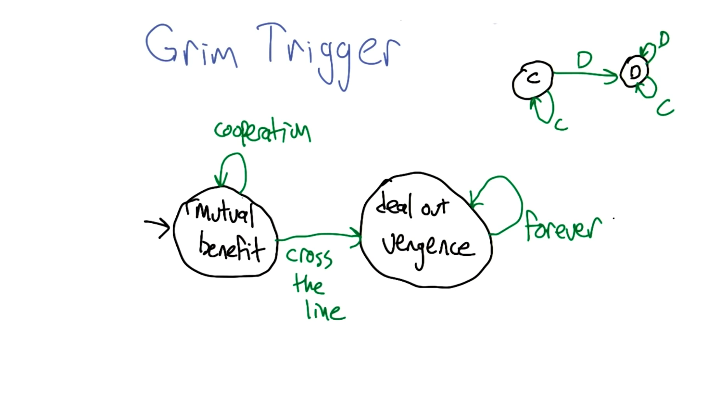 Grim Trigger
D
D
C
D
C
C
cooperation
mutual
benefit
cross
the
line
deal out
vengence
forever